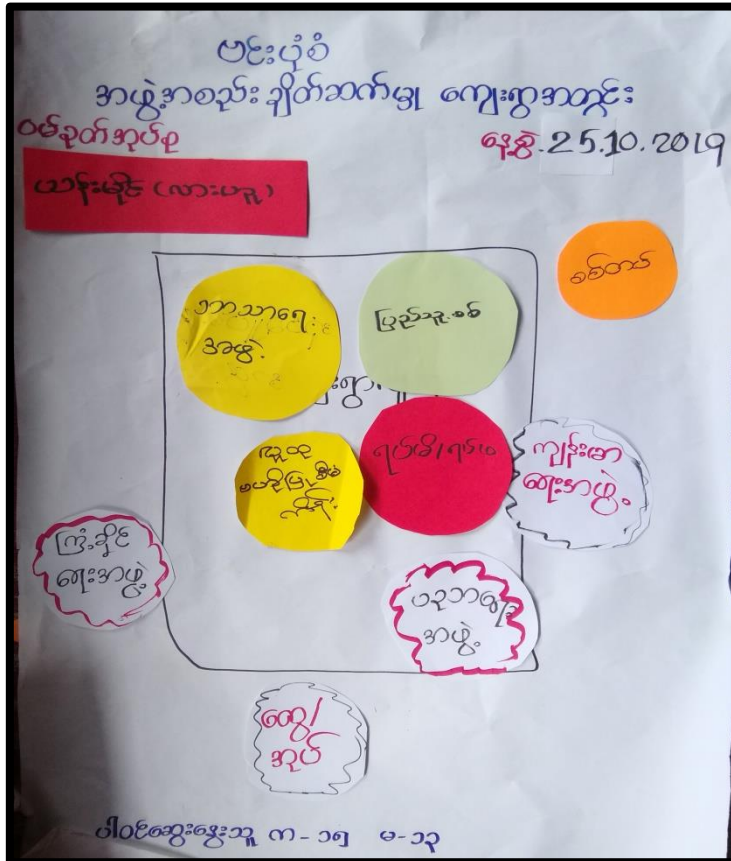 ဗင်းပုံစံ
အဖွဲ့အစည်း ချိတ်ဆက်မှု ကျေးရွာအတွင်း
ဝမ်ခုတ်အုပ်စု
နေ့စွဲ.25.10.2019
ယာန်းမိုင် (လားဟူ)
စစ်တပ်
ဘာသာရေး
အဖွဲ့
ပြည်သူ့စစ်
လူထု
ရပ်မိ/ရပ်ဖ
ကျန်းမာ
ရေးအဖွဲ့
ကြံ့ခိုင်
ရေးအဖွဲ့
ပညာရေး
အဖွဲ့
ထွေ/
အုပ်
ပါဝင်ဆွေးနွေးသူ က - ၁၅ မ - ၁၃